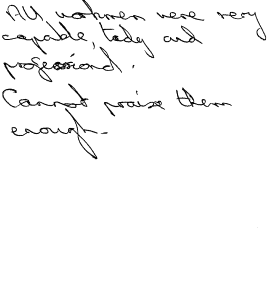 All workmen were very
capable, tidy and
professional.
Cannot praise them
enough.